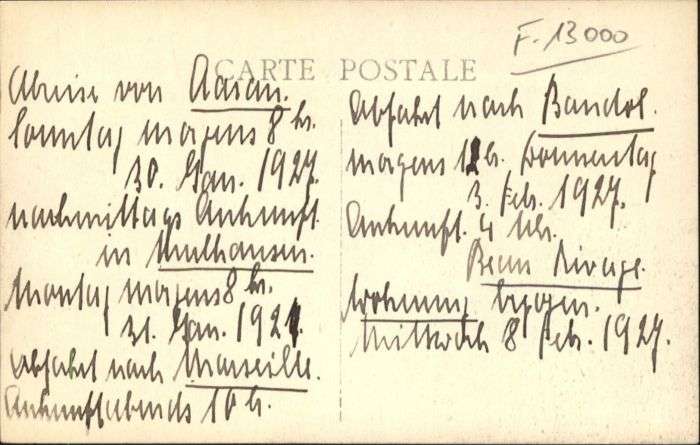 F. 13000
CARTE POSTALE
Abreise von Aarau.
Sonntag morgens 8 hr.
30. Jan. 1927.
nachmittags Ankunft
in Mulhausen.
Montag morgens 8 hr.
31. Jan. 1927.
Abfahrt nach Marseille.
Ankunft abends 10 h.
Abfahrt nach Bandol.
morgens h. Donnerstag
3. Feb. 1927.
Ankunft. 4 Uhr.
Beau Rivage.
Wohnung bezogen.
Mittwoch 8 Feb. 1927.